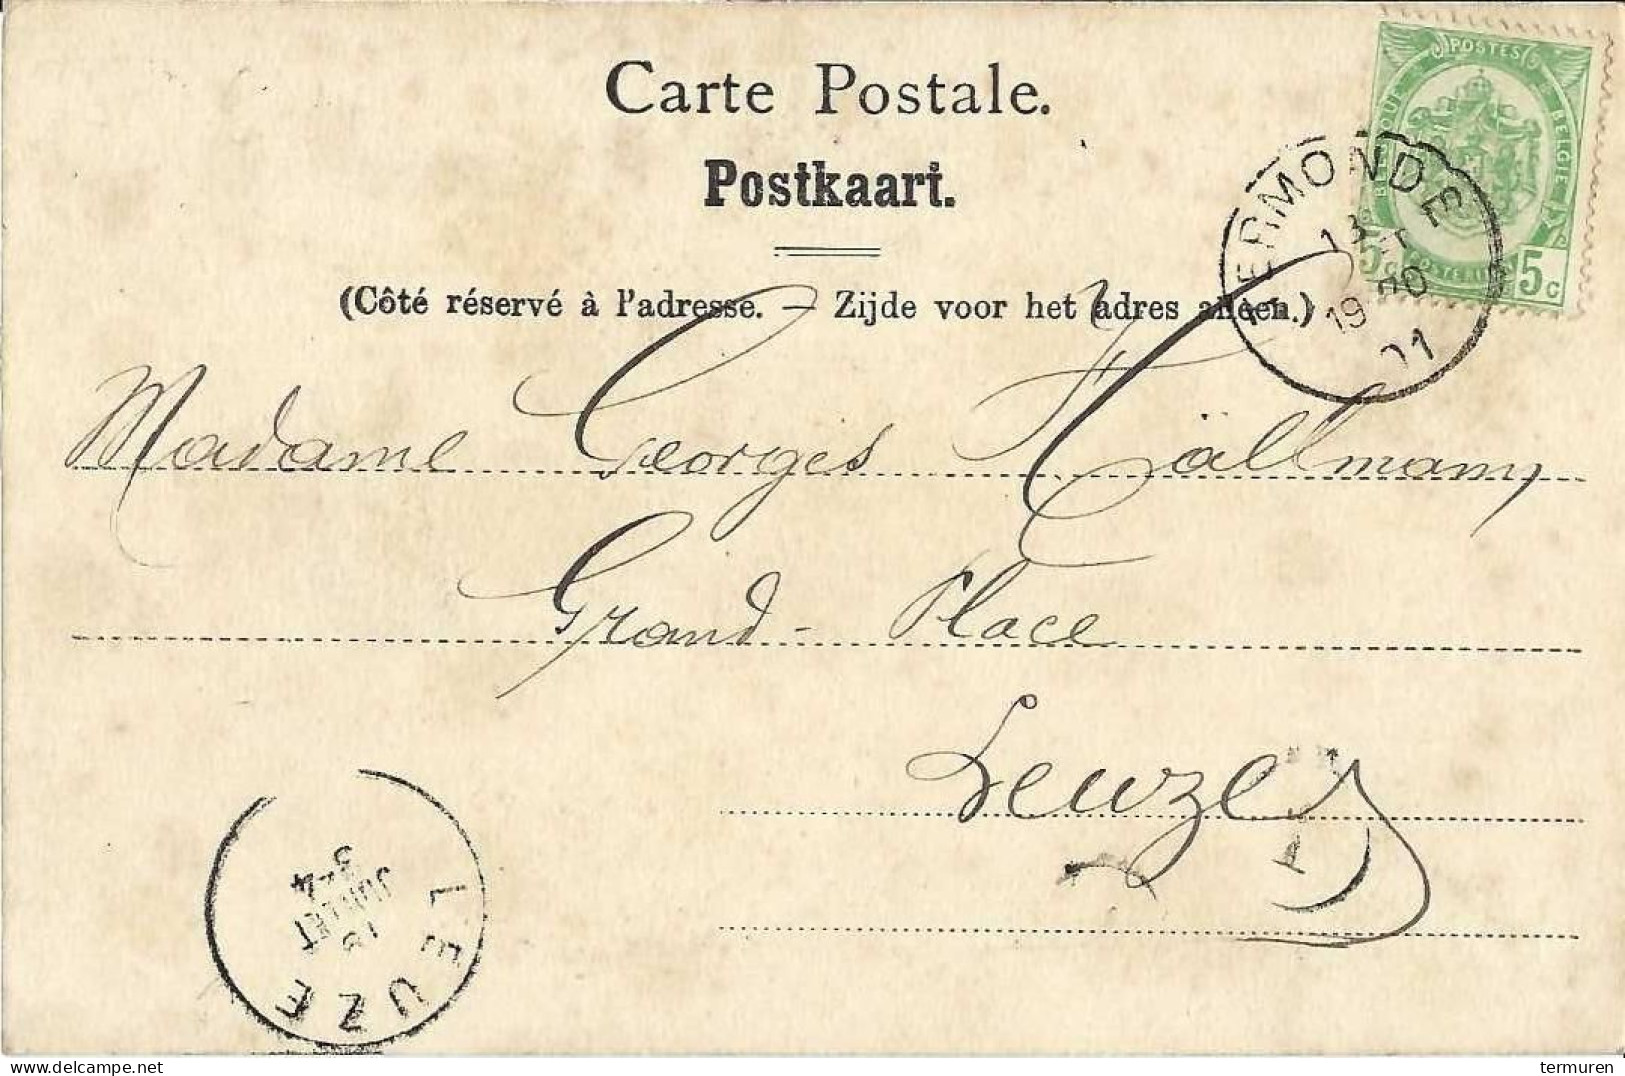 Carte Postale.
Postkaart.
(Côté réservé à l'adresse. — Zijde voor het adres alleen.)
POSTES
BELGIE
5 5 c
TERMONDE
13
19-20
01
Madame Georges Källmann
Grand-Place
Leuze
LEUZE
JUILLET
termuren